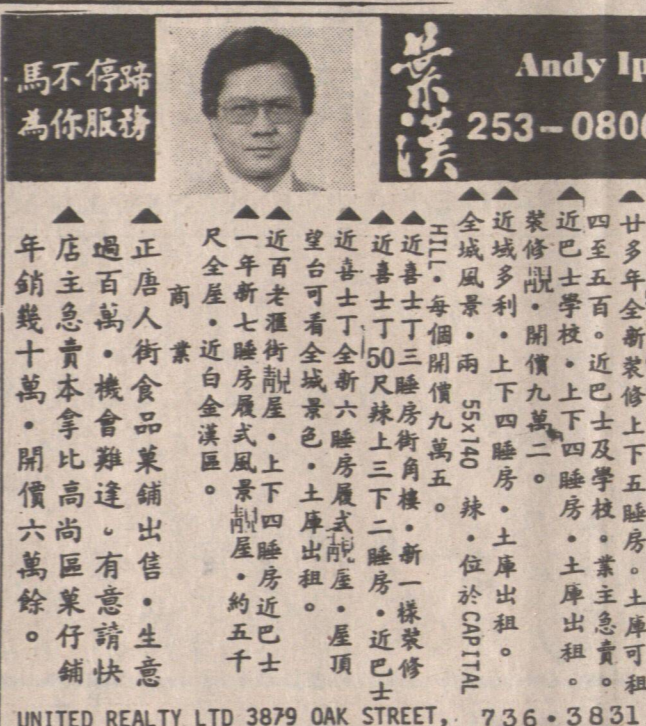 馬不停蹄
為你服務
葉漢
Andy Ip
253-0806
▲廿多年全新裝修上下五睡房。土庫可租
四至五百。近巴士及學校。業主急賣。
▲近巴士學校•上下四睡房•土庫出租。
裝修靚•開價九萬二。
▲近域多利•上下四睡房•土庫出租。
▲全城風景•兩 55x140 辣•位於CAPITAL
HILL•每個開價九萬五。
▲近喜士丁三睡房街角樓•新一樣裝修
▲近喜士丁50尺辣上三下二睡房•近巴士
▲近喜士丁全新六睡房履式靚屋•屋頂
望台可看全城景色•土庫出租。
▲近百老滙街靚屋•上下四睡房近巴士
▲一年新七睡房履式風景靚屋•約五千
尺全屋•近白金漢區。
商業
▲正唐人街食品菓鋪出售•生意
過百萬•機會難逢。有意請快
▲店主急賣本拿比高尚區菓仔鋪
年銷幾十萬•開價六萬餘。
UNITED REALTY LTD 3879 OAK STREET, 736•3831